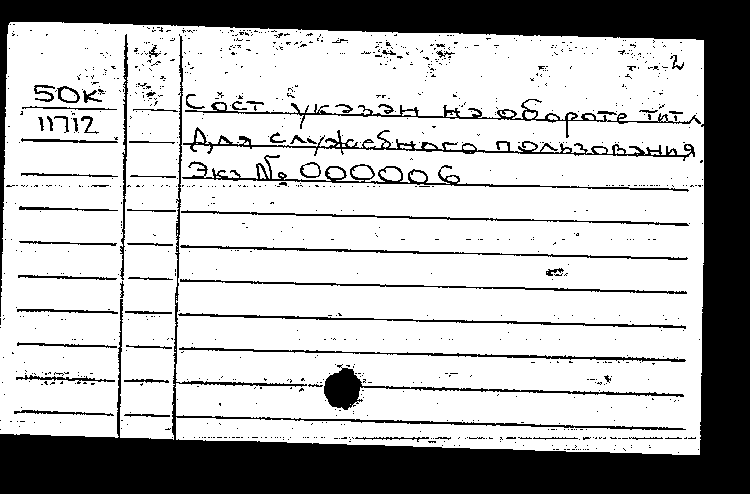 2
50К
11712
Сост. указан на обороте титл.
Для служебного пользования.
Экз № 000006